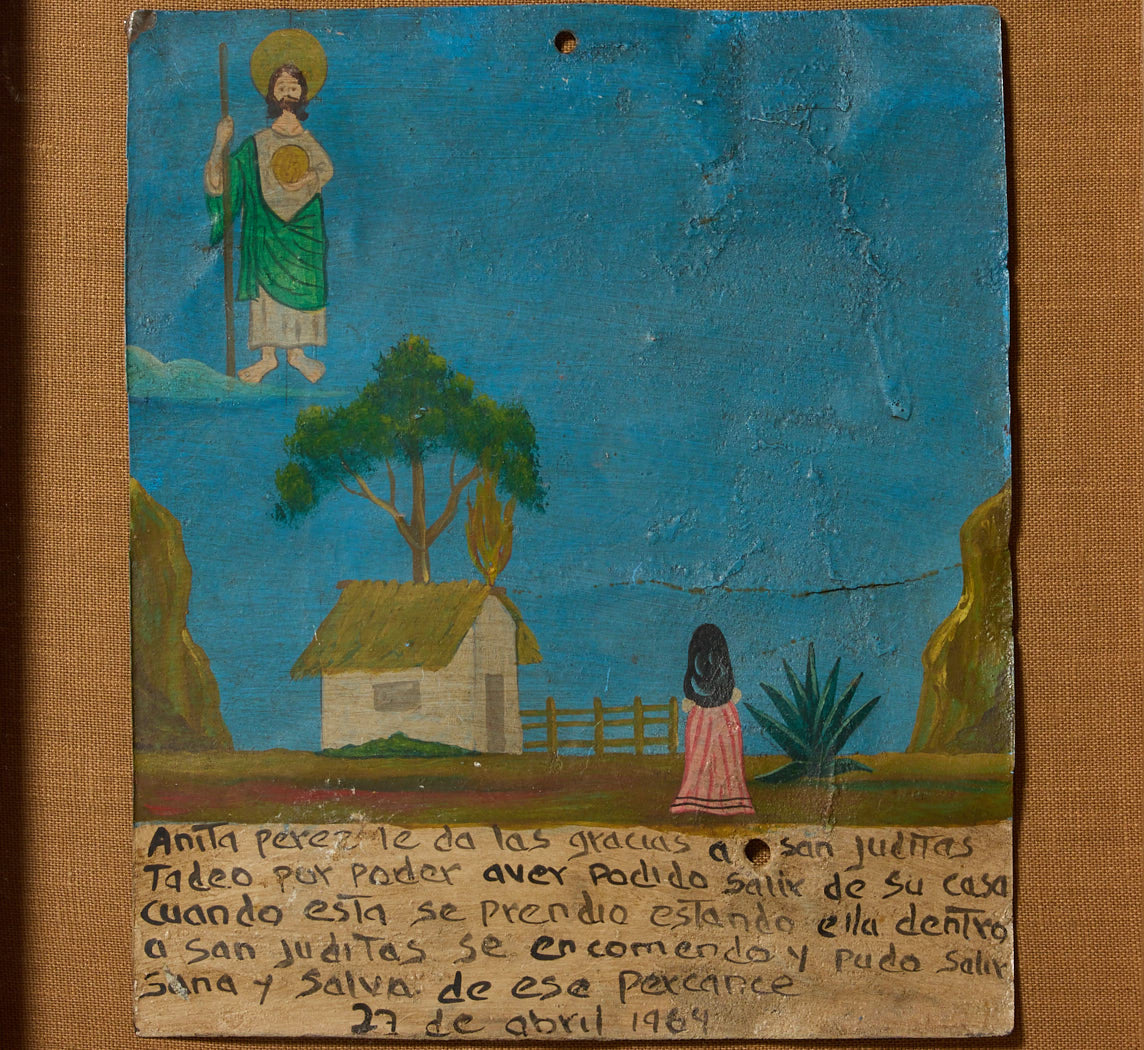 Anita perez le da las gracias a san juditas
Tadeo por poder aver podido salir de su casa
cuando esta se prendio estando ella dentro
a san juditas se encomendo y pudo salir
sana y salva de ese percance
27 de abril 1964